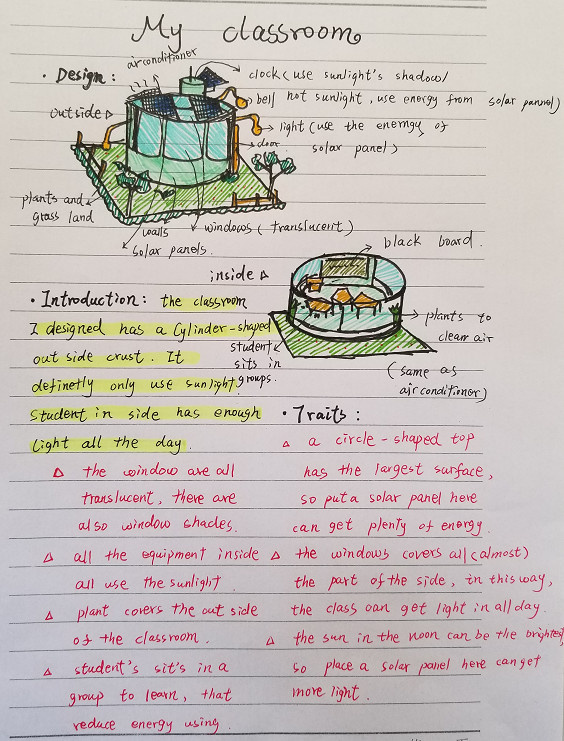 My classroom
airconditioner
• Design:
clock (use sunlight's shadow/
bell not sunlight, use energy from solar pannel)
outside
light (use the enemgy of
solar panel)
door
plants and
grass land
walls
solar panels.
windows (translucent)
black board.
inside
plants to
clean air
(same as
airconditioner)
student
sits in
groups.
• Introduction: the classroom
I designed has a Cylinder-shaped
out side crust. It
definetly only use sunlight.
Student in side has enough
light all the day.
△ the window are all
translucent, there are
also window shades.
△ all the equipment inside
all use the sunlight.
△ plant covers the out side
of the classroom.
△ student's sit's in a
group to learn, that
reduce energy using.
• Traits:
△ a circle-shaped top
has the largest surface,
so put a solar panel here
can get plenty of energy.
△ the windows covers all (almost)
the part of the side, in this way,
the class can get light in all day.
△ the sun in the noon can be the brightest,
so place a solar panel here can get
more light.